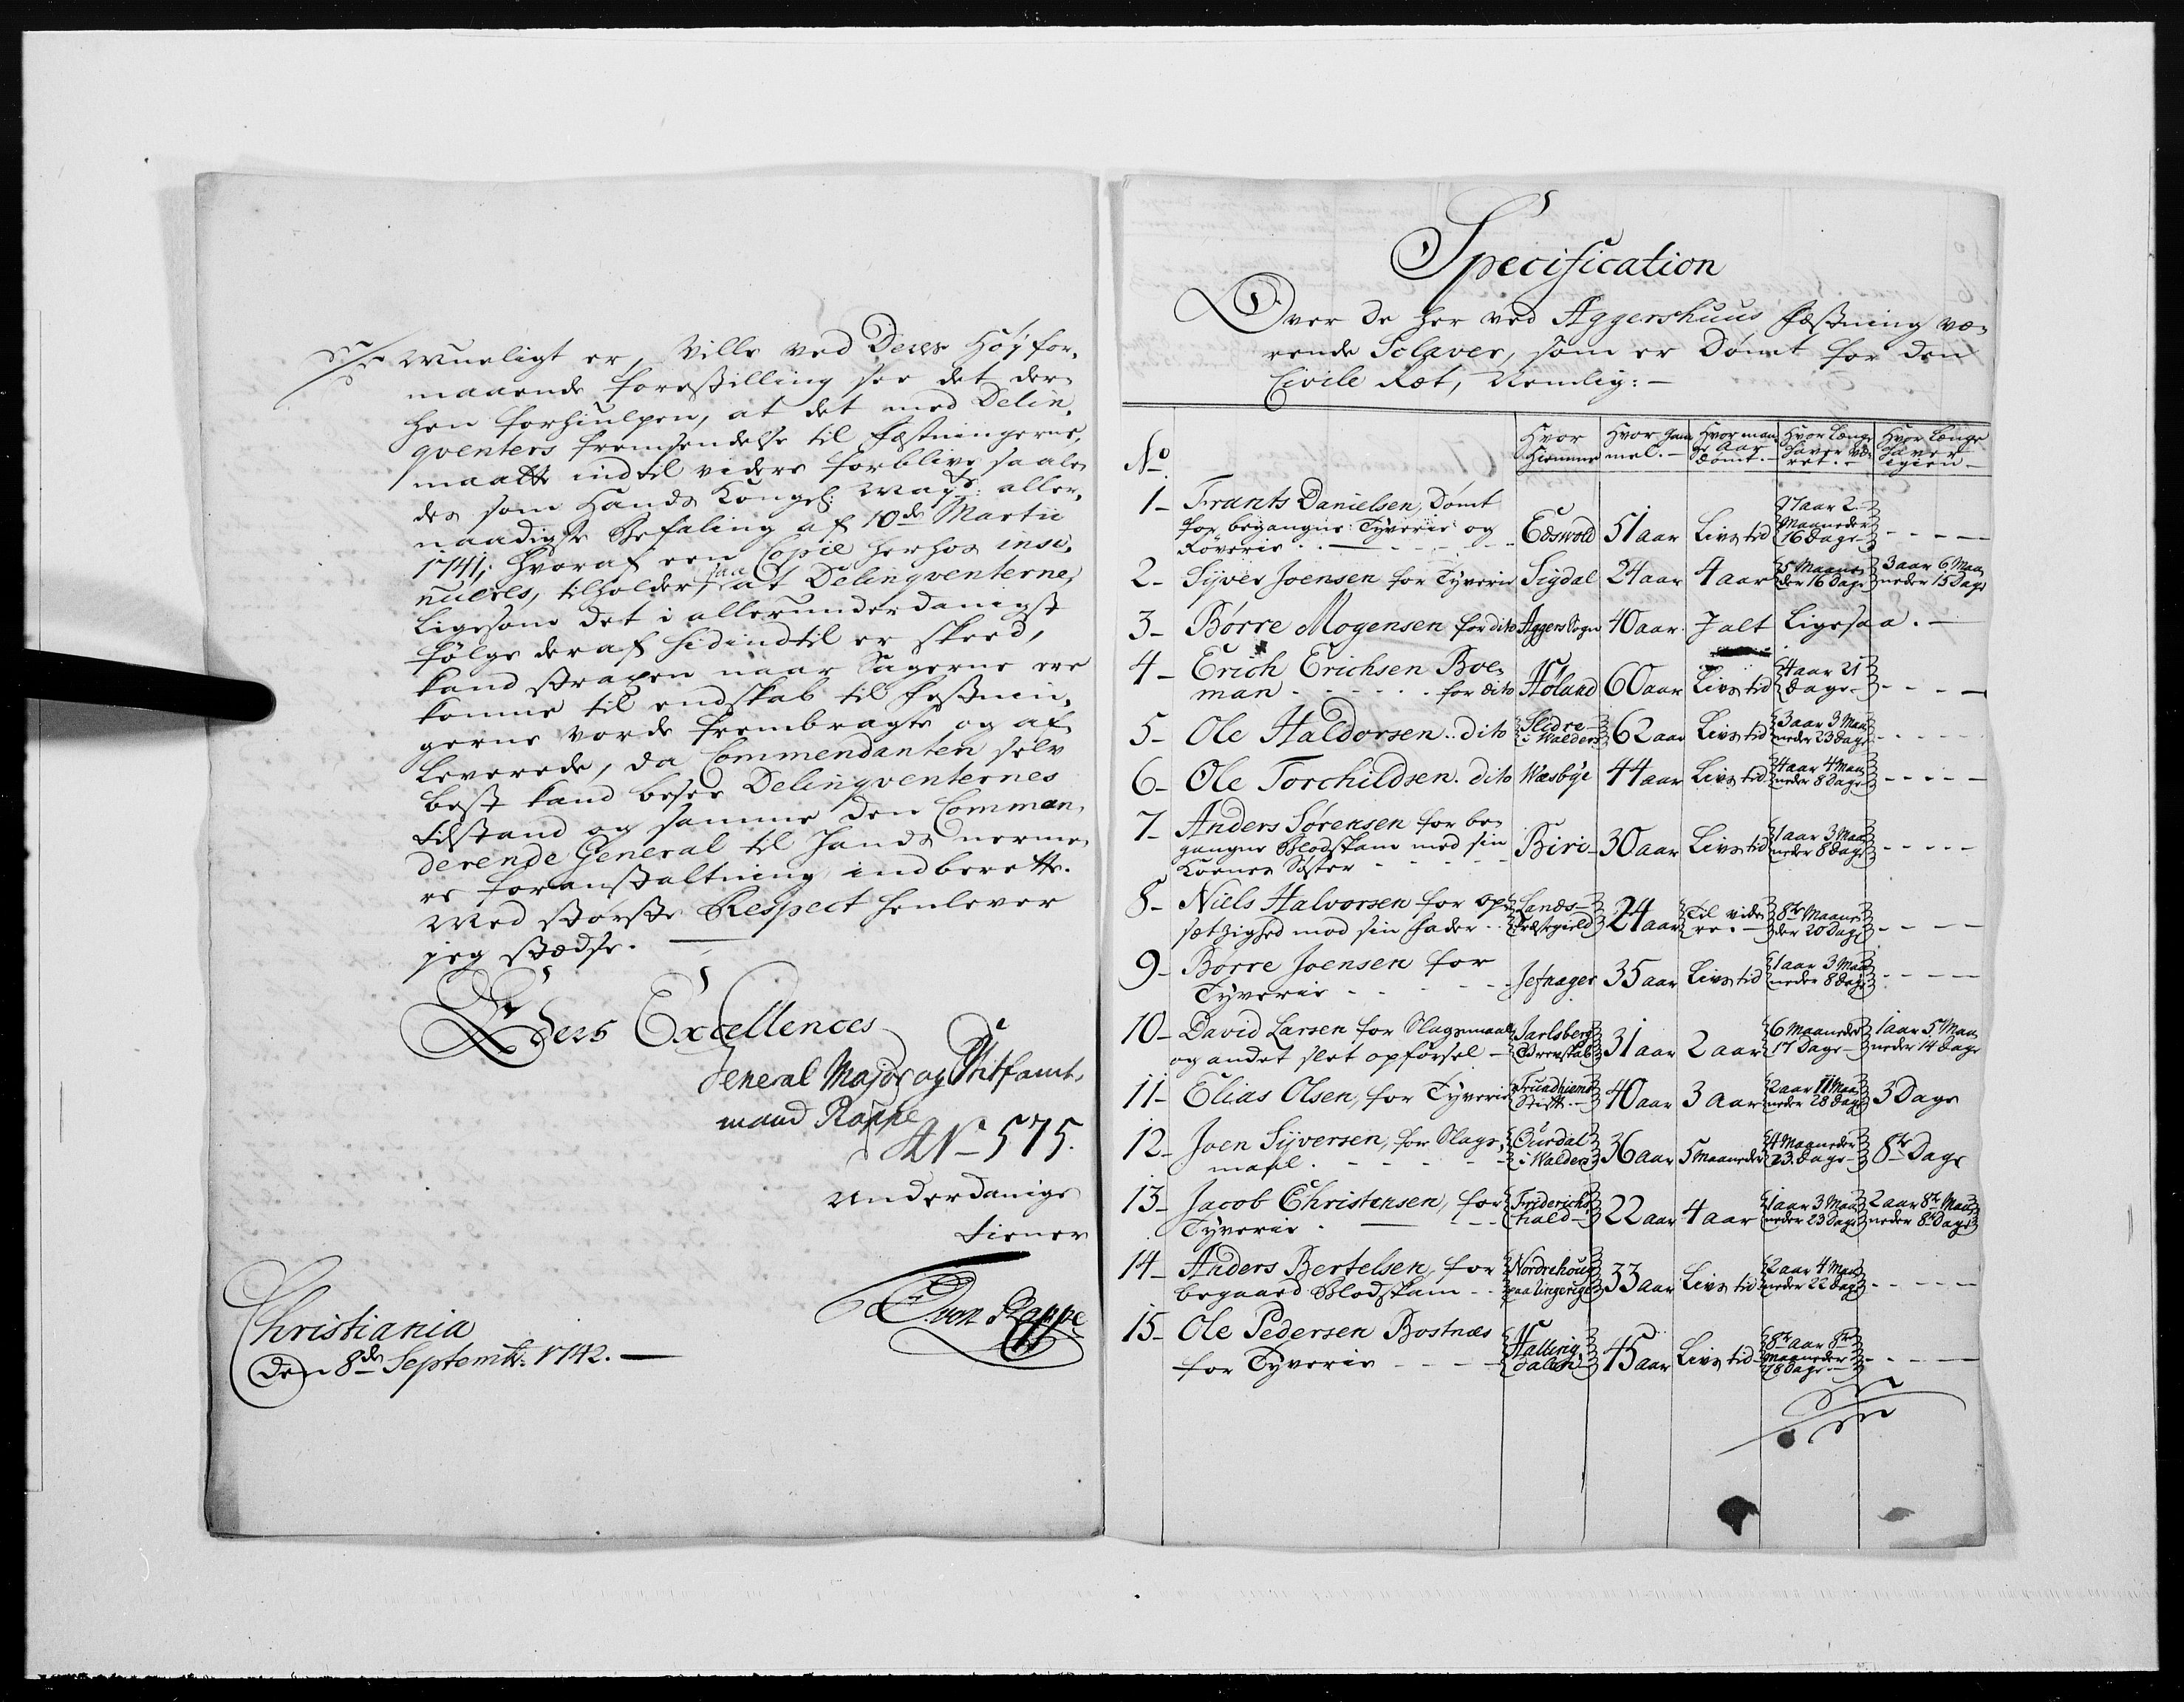 mueligt er, Ville ved Deres Høyfor-
maaende forestilling see det der-
hen forhiulpen, at det med Delin-
qventers fremsendelse til fæstningerne,
maatte indtil videre forblive saale-
des som Hands Kongel: May:ts aller-
naadigste Befaling af 10de Martii
1741, hvoraf een Copie herhos insi-
nueres, tilholder, saa at Delinqventerne,
ligesom det i allerunderdanigst
følge deraf hidindtil er skeed,
kand strax naar Sagerne ere
komne til endskab til fæstnin-
gerne vorde frembragte og af-
leverede, da Commendanten selv
best kand besee Delinqventernes
tilstand og samme den Comman-
derende General til Hands nærme-
re foranstaltning indberette.
Med største Respect henlever
jeg stædse.
Ders Excellences
General Major og Stiftamt-
mand Rappe
No 575.
Underdanige
tiener
von Rappe
Christiania
den 8de Septembr: 1742.
Specification
Over de her ved Aggershuus fæstning væ-
rende Sclaver, som er Dømt for den
Civile Ret, Nemlig:
No Hvor Hiemme Hvor Gam mel. Hvor man ge Aar dømt. Hvor længe Haver væ ret. Hvor længe Haver igien
1 Frants Danielsen, Dømt
for begangne Tyverie og
Røverie Edswold 51 aar Livs tid 17 aar 2 Maaneder 16 Dage
2 Syver Joensen for Tyverie Sigdal 24 aar 4 aar 5 Maane der 16 Dage 3 aar 6 Maa neder 15 Dage
3 Børre Mogensen for dito Aggers Sogn 40 aar I alt Ligesaa.
4 Erich Erichsen Boe-
man for dito Høland 60 aar Livs tid 4 aar 21 Dage
5 Ole Haldorsen dito Slidre i Walders 62 aar Livs tid 3 aar 3 Maa neder 23 Dage
6 Ole Torchildsen dito Wæsbye 44 aar Livs tid 4 aar 4 Maa neder 8 Dage
7 Anders Sørensen for be-
gangne Blodskam med sin
Koenes Søster Biri 30 aar Livs tid 1 aar 3 Maa neder 8 Dage
8 Niels Halvorsen for op-
sætzighed mod sin Fader Lands Præstegield 24 aar Til vide re. 8te Maane der 20 Dage
9 Børre Joensen for
Tyverie Jefnager 35 aar Livs tid 1 aar 3 Maa neder 8 Dage
10 David Larsen for Slagsmaal
og andet slet opførsel Jarlsberg Grevskab 31 aar 2 aar 6 Maaneder 17 Dage 1 aar 5 Maa neder 14 Dage
11 Elias Olsen, for Tyverie Trundhiems Stift 40 aar 3 aar 2 aar 11 Maa neder 28 Dage 3 Dage
12 Joen Syversen, for Slags-
maal Ourdal i Walders 36 aar 5 Maaneder 4 Maaneder 23 Dage 8te Dage
13 Jacob Christensen, for
Tyverie Friderichs hald 22 aar 4 aar 1 aar 3 Maa neder 23 Dage 2 aar 8te Maa neder 8te Dage
14 Anders Bertelsen, for
begaaed Blodskam Nordrehoug paa Ringerige 33 aar Livs tid 2 aar 4 Maa neder 22 Dage
15 Ole Pedersen Bostnæs
for Tyverie Halling dalen 45 aar Livs tid 8te aar 8te Maaneder 28 Dage